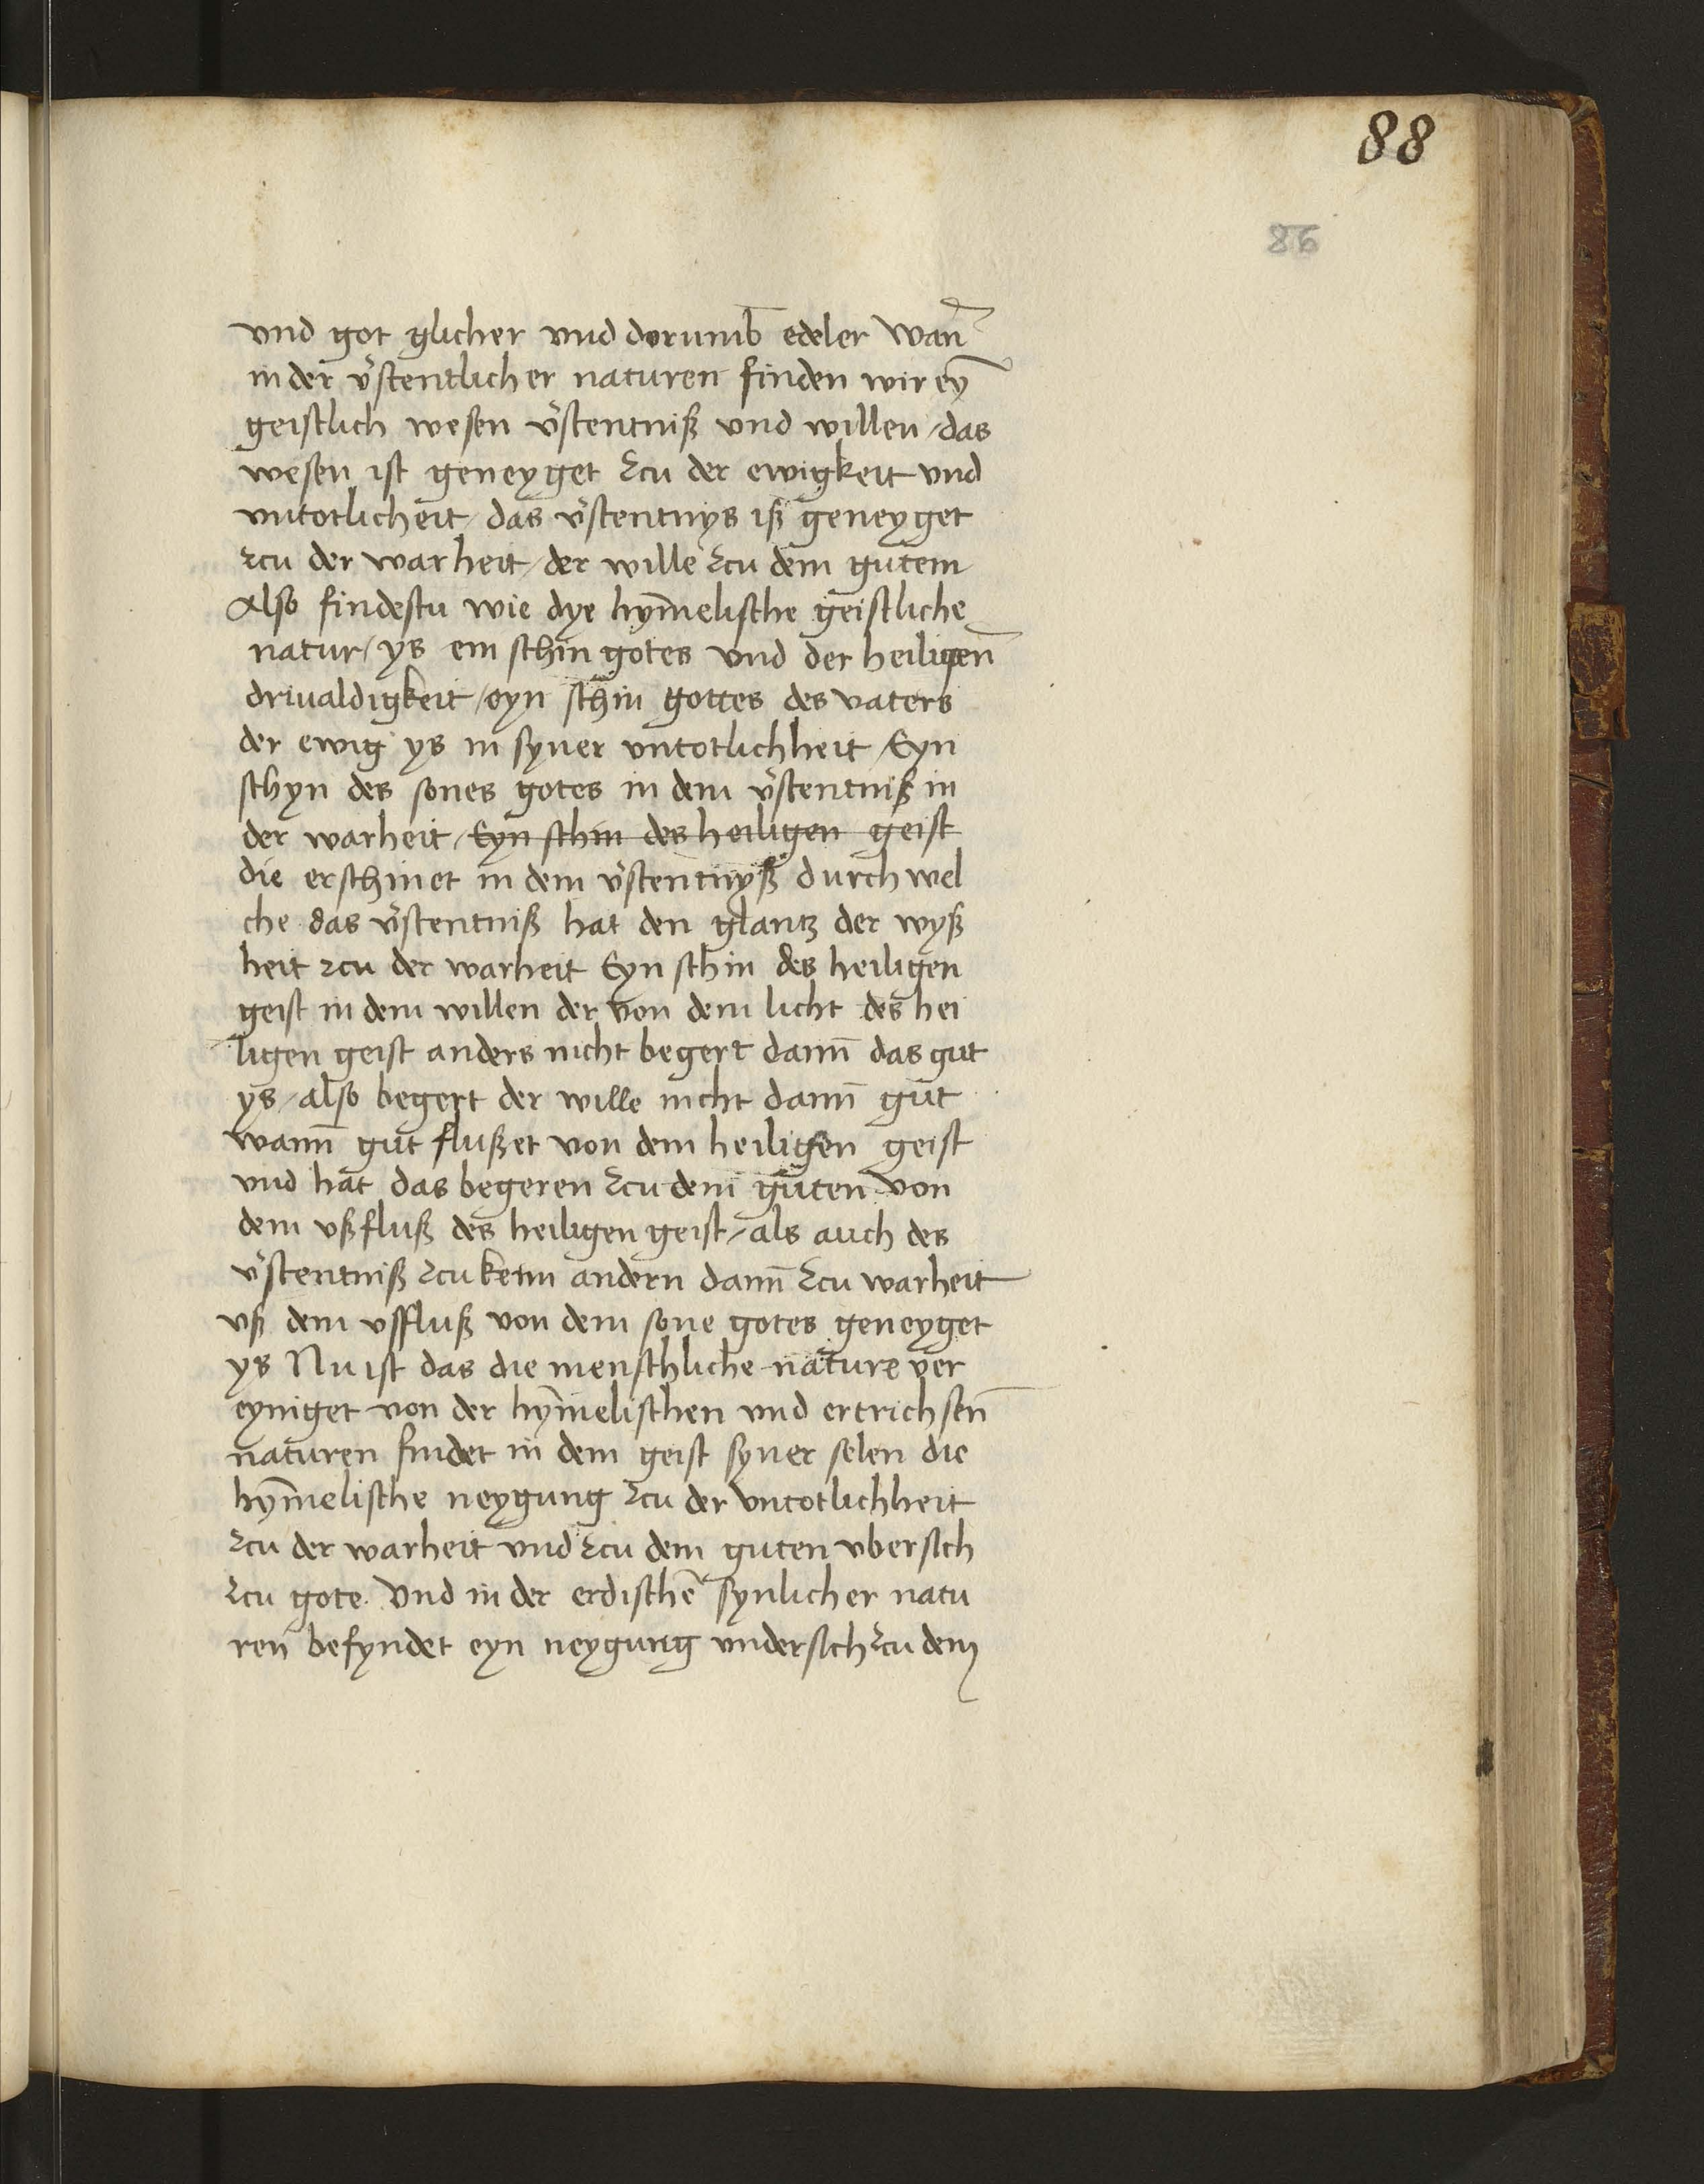 88
86
vnd got glicher vnd dorumb edeler wan̄
in der v̾stentlicher naturen finden wir eȳ
geistlich wesen v̾stentniß vnd willen / das
wesen ist geneyget zcu der ewigkeit vnd
vntotlicheit / das v̾stentnys iß geneyget
zcu der warheit / der wille zcu dem gutem
Also findestu wie dye hym̄elische geistliche
natur / ys ein schin gotes vnd der heiligen̄
driualdigkeit / eyn schin gottes des vaters
der ewig ys in syner vntotlichheit / Eyn
schyn des sones gotes in dem v̾stentniß in
der warheit / Eyn schin des heiligen geist
die erschinet in dem v̾stentnyß durch wel
che das v̾stentniß hat den glantz der wyß
heit zcu der warheit Eyn schin des heiligen
geist in dem willen der von dem licht des hei
ligen geist anders nicht begert dann̄ das gut
ys / also begert der wille nicht dann̄ gut
wann̄ gut flußet von dem heiligen geist
vnd hat das begeren zcu dem guten von
dem vßfluß des heiligen geist / als auch des
v̾stentniß zcu keim andern dann̄ zcu warheit
vß dem vsfluß von dem sone gotes geneyget
ys Nu ist das die menschliche nature ver
eyniget von der hym̄elischen vnd ertrichsen̄
naturen findet in dem geist syner selen die
hym̄elische neygung zcu der vntotlichheit
zcu der warheit vnd zcu dem guten vbersich
zcu gote. Vnd in der erdischē synlicher natu
ren befyndet eyn neygung vndersich zcu dem